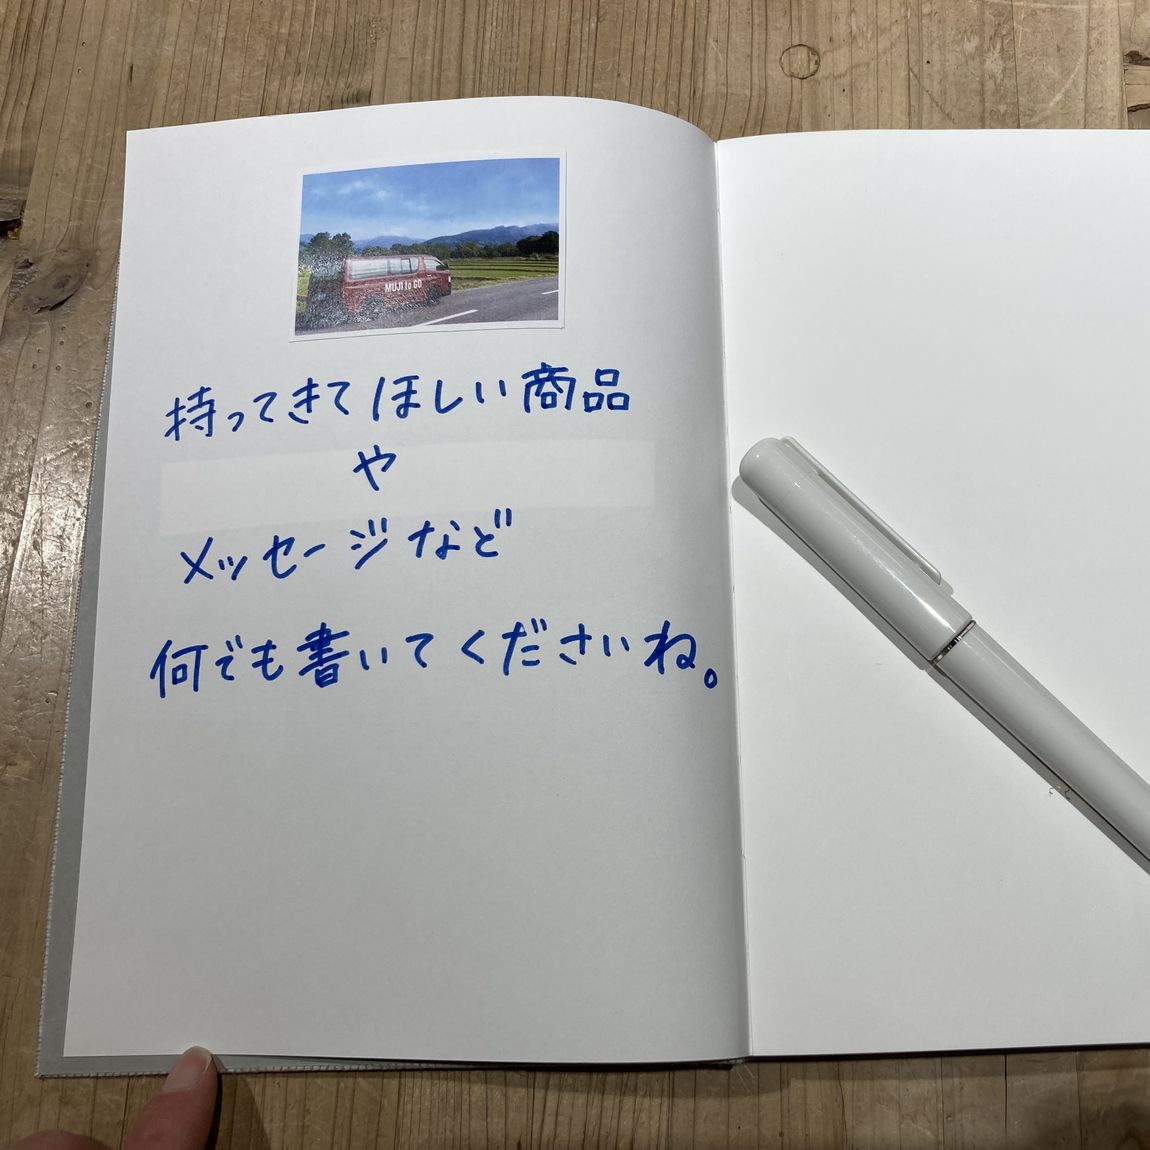 MUJI to GO
持ってきてほしい商品
や
メッセージなど
何でも書いてくださいね。